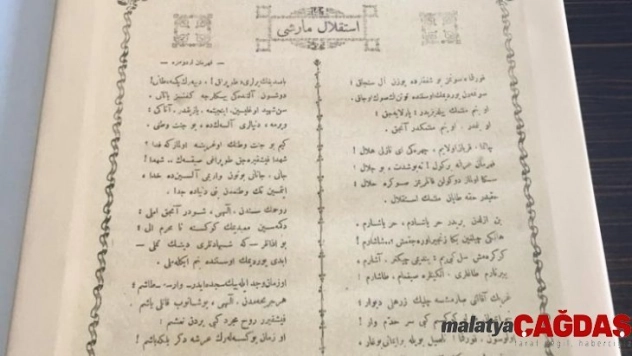 استقلال مارشی
قهرمان اردومزه
قورقما، سونمز بو شفقلرده یوزن آل سنجاق؛
سونمه‌دن یوردمك اوستنده توتن اك صوك اوجاق.
او بنم ملتمك ییلدیزیدر؛ پارلایه‌جق؛
او بنمدر، او بنم ملتمكدر آنجق.
چاتما، قربان اولایم، چهره‌كی ای نازلی هلال!
قهرمان عرقمه بر كول! نه بو شدت، بو جلال؟
سكا اولماز دوكولن قانلریمز صوكره حلال؛
حقیدر حقه طاپان ملتمك استقلال.
بن ازلدن بریدر حر یاشادم، حر یاشارم.
هانكی چیلغین بكا زنجیر اوره‌جقمش؟ شاشارم!
كوكره‌مش سیل كبی‌یم؛ بندیمی چیكنر، آشارم؛
ییرتارم طاغلری، انكینلره صیغمام، طاشارم.
غربك آفاقنی صارمشسه چلیك زرهلی دیوار؛
بنم ایمان طولو كوكسم كبی سرحدم وار.
اولوسون، قورقما! ناصل بویله بر ایمانی بوغار،
باصدیغك یرلری «طوپراق!» دییه‌رك كچمه، طانی!
دوشون آلتنده‌كی بیكلرجه كفنسز یاتانی.
سن شهید اوغلیسك، اینجیتمه، یازیقدر، آتاكی؛
ویرمه، دنیالری آلسه‌كده، بو جنت وطنی.
كیم بو جنت وطنك اوغرینه اولماز كه فدا؟
شهدا فیشقیره‌جق طوپراغی صیقسه‌ك، شهدا!
جانی، جانانی بوتون واریمی آلسین‌ده خدا
ایتمسین تك وطنمدن بنی دنیاده جدا.
روحمك سندن، الهی، شودر آنجق املی:
دكمه‌سین معبدیمك كوكسنه نامحرم الی؛
بو اذانلر كه شهادتلری دینك تملی
ابدی یوردمك اوستنده بنم ایكله‌ملی.
او زمان وجد ایله بیك سجده ایدر وارسه طاشم؛
هر جریحه‌مدن، الهی، بوشانوب قانلی یاشم
فیشقیریر روح مجرد كبی یردن نعشم؛
او زمان یوكسله‌رك عرشه دكر بلكه باشم!
malatya ÇAĞDAŞ